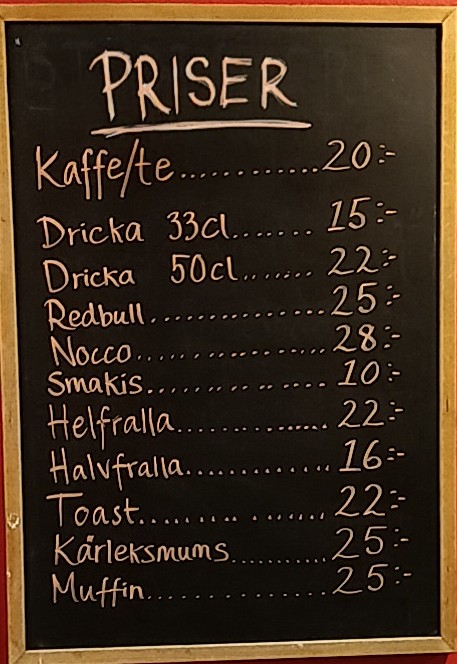 PRISER
Kaffe/te............20:-
Dricka 33cl....... 15:-
Dricka 50cl....... 22:-
Redbull................25:-
Nocco....................28:-
Smakis.................10:-
Helfralla................22:-
Halvfralla.............16:-
Toast....................22:-
Kärleksmums..........25:-
Muffin...................25:-